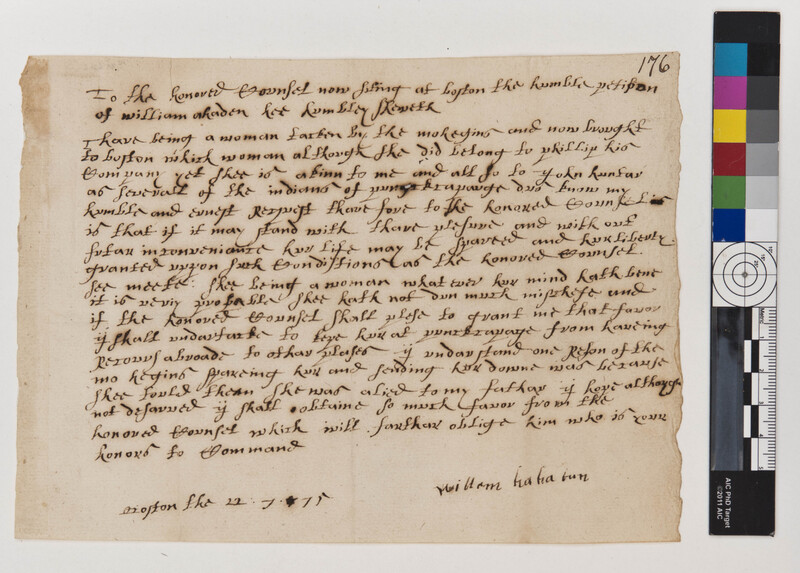 176
To the honored Counsel now siting at boston the humble petision
of william ahaden hee humbley sheweth
Thare being a woman tacken by the mohegins and now brought
to boston which woman although she did belong to phillip his
Company yet shee is a kinn to me and all so to John huntar
as severall of the indians of punckapauge dus know my
humble and ernest Request thare fore to the honored Counsel is
is that if it may stand with thare plesure and with out
futar inconveniance hur life may be spared and hur liberty
granted uppon such Conditions as the honored Counsel
see meete: shee being a woman what ever hur mind hath bene
it is veriy probable shee hath not dun much mischefe and
if the honored Counsel shall plese to grant me that favor
ij shall undartacke to kepe hur at punckapage from
Recours abroade to othar plases ij undarstand one Reson of the
mo hegins spareing hur and sending hur downe was becarse
shee tould them she was alied to my fathar ij hope although
not desarved ij shall obtaine so much favor from the
honored Counsel which will farthar oblige him who is your
honors to Command
Boston the 22 . 7 . 1675
Willem hahatun
AIC PhD Target
©2011 AIC